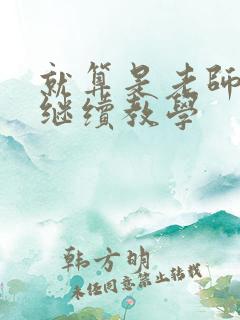 就算是老師
继续教學
韩方明
未经同意禁止转载